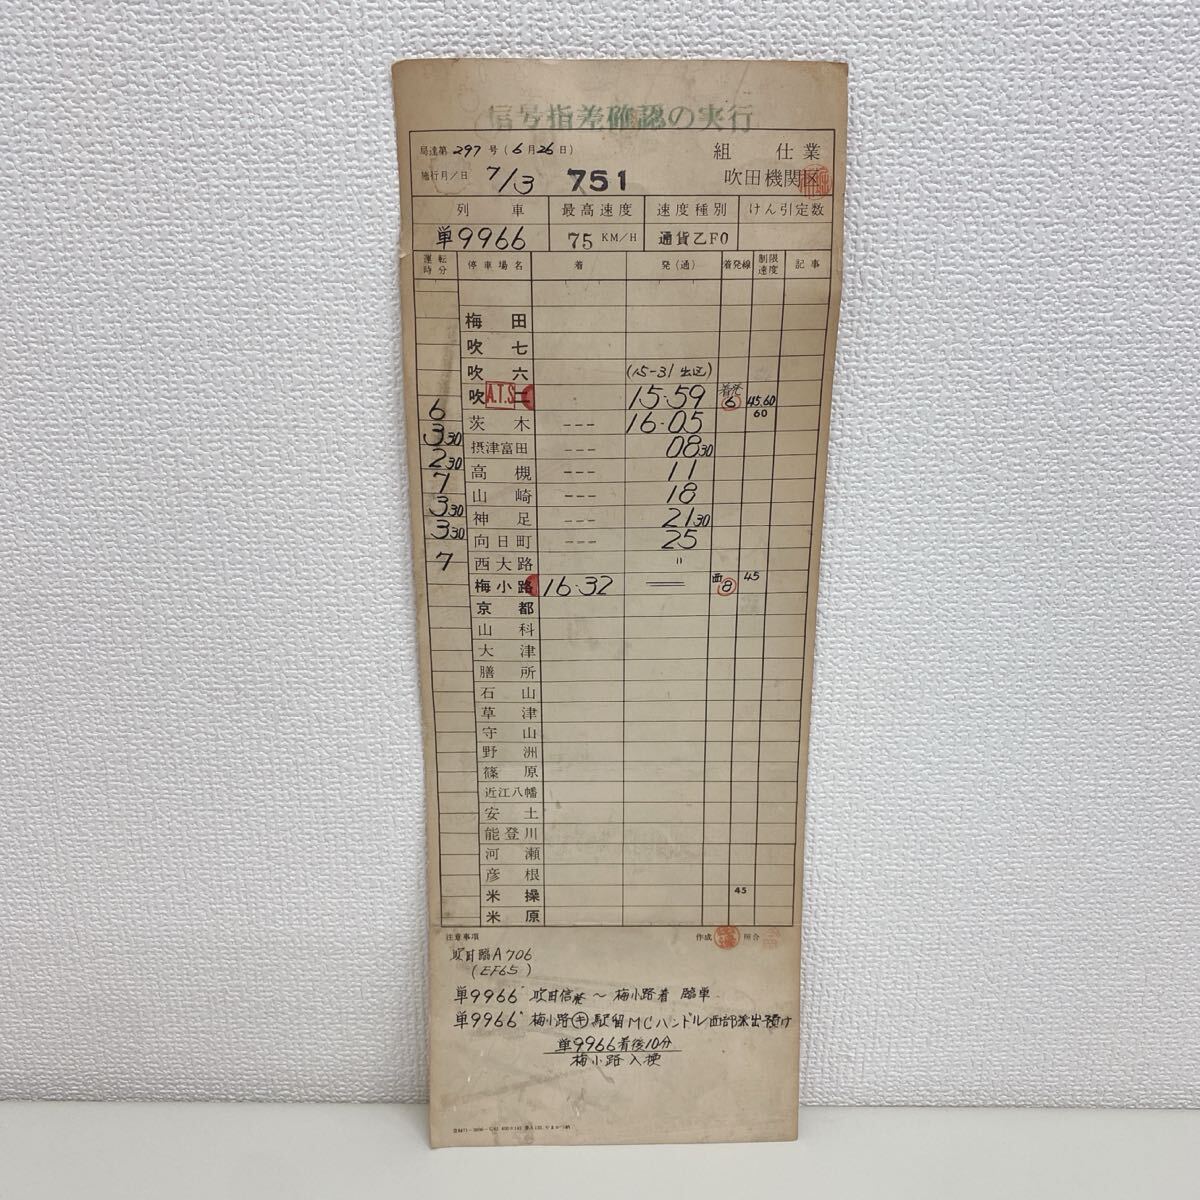 信号指差確認の実行
局達第 297 号 (6月26日) 組 仕業
施行月/日 7/3 751 吹田機関区
列車 最高速度 速度種別 けん引定数
単9966 75 KM/H 通貨乙F0
運転時分 停車場名 着 発(通) 着発線 制限速度 記事
梅田
吹七
吹六 (15-31 出区)
吹二 A.T.S 15.59 着発 6 45.60
6 60
茨木 --- 16.05
3 30
摂津富田 --- 08 30
2 30
高槻 --- 11
7
山崎 --- 18
3 30
神足 --- 21 30
3 30
向日町 --- 25
7
西大路 〃
梅小路 16.32 西 8 45
京都
山科
大津
膳所
石山
草津
守山
野洲
篠原
近江八幡
安土
能登川
河瀬
彦根
米操 45
米原
注意事項 作成 照合
吹田臨A706
(EF65)
単9966 吹田信発 〜 梅小路着 臨単.
単9966 梅小路 キ 駅留MCハンドル西部派出預け
単9966着後10分
梅小路入換